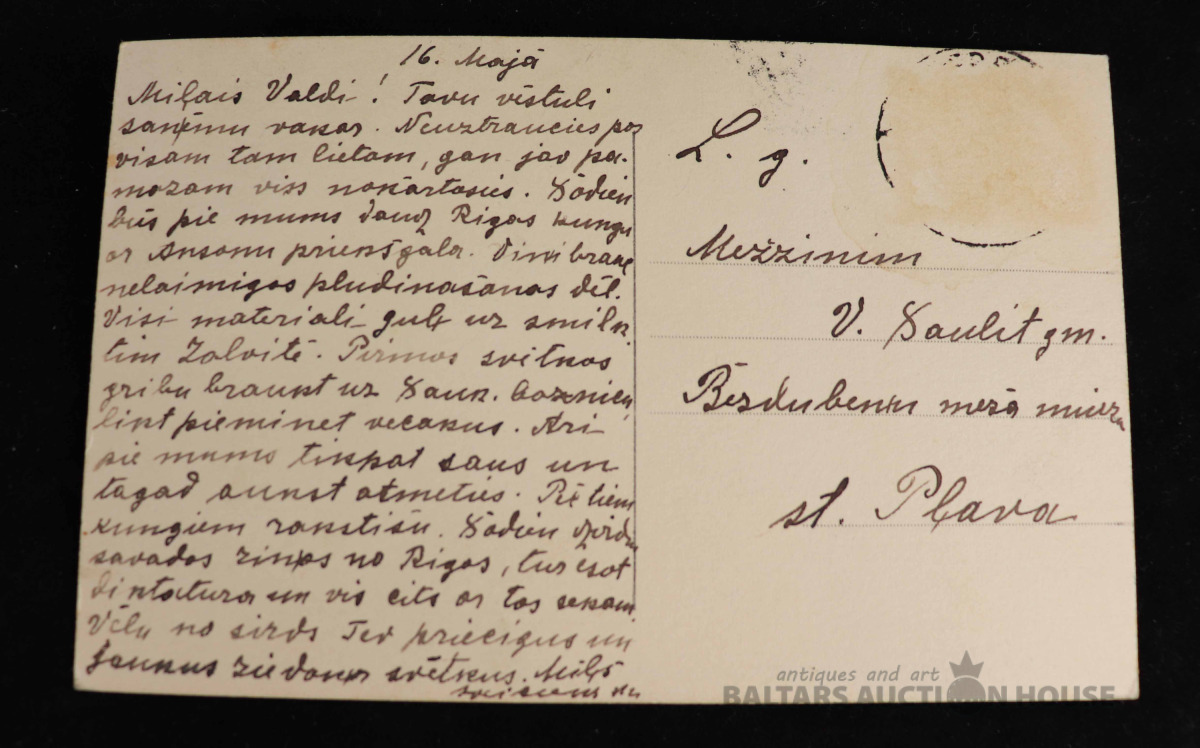 16. Majā
Miļais Valdi! Tavu vēstuli
saņēmu vakar. Neuztraucies par
visam tam lietam, gan jav pa-
mazam viss nokārtosies. Šodien
būs pie mums daudz Rigas kungu
ar Ansonu priekšgalā. Viņi brauc
nelaimigas pludinašanas dēļ.
Visi materiali guļ uz smilk-
tim Zalvitē. Pirmos svētkos
gribu braukt uz Sauk. baznicu
likt pieminet vecakus. Ari
pie mums tikpat sauss un
tagad aukst atmeties. Pē tiem
kungiem rakstišu. Šodien dzirdu
savadas ziņas no Rigas, tur esot
diktatura un vis cits ar tas sekam
Vēlu no sirds Tev priecigus un
jaukus ziedoņa svētkus. Miļš
sveiciens
L. g.
Mežzinim
V. Saulit gm.
Bērzdubenu meža muiža
st. Pļava
antiques and art
BALTARS AUCTION HOUSE